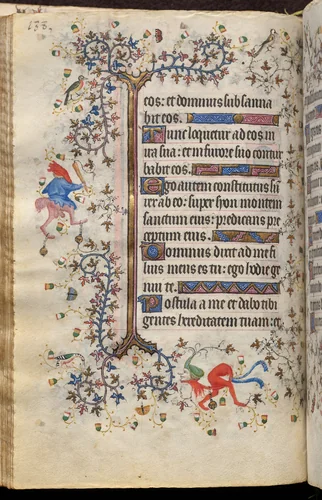 133.
eos: et dominus subsanna
bit eos.
Tunc loquetur ad eos in
ira sua: et in furore suo contur
babit eos.
Ego autem constitutus su(m)
rex ab eo: super syon montem
sanctum eius: predicans pre
ceptum eius.
Dominus dixit ad me fi
lius meus es tu: ego hodie ge
nui te.
Postula a me et dabo tibi
gentes hereditatem tuam: et